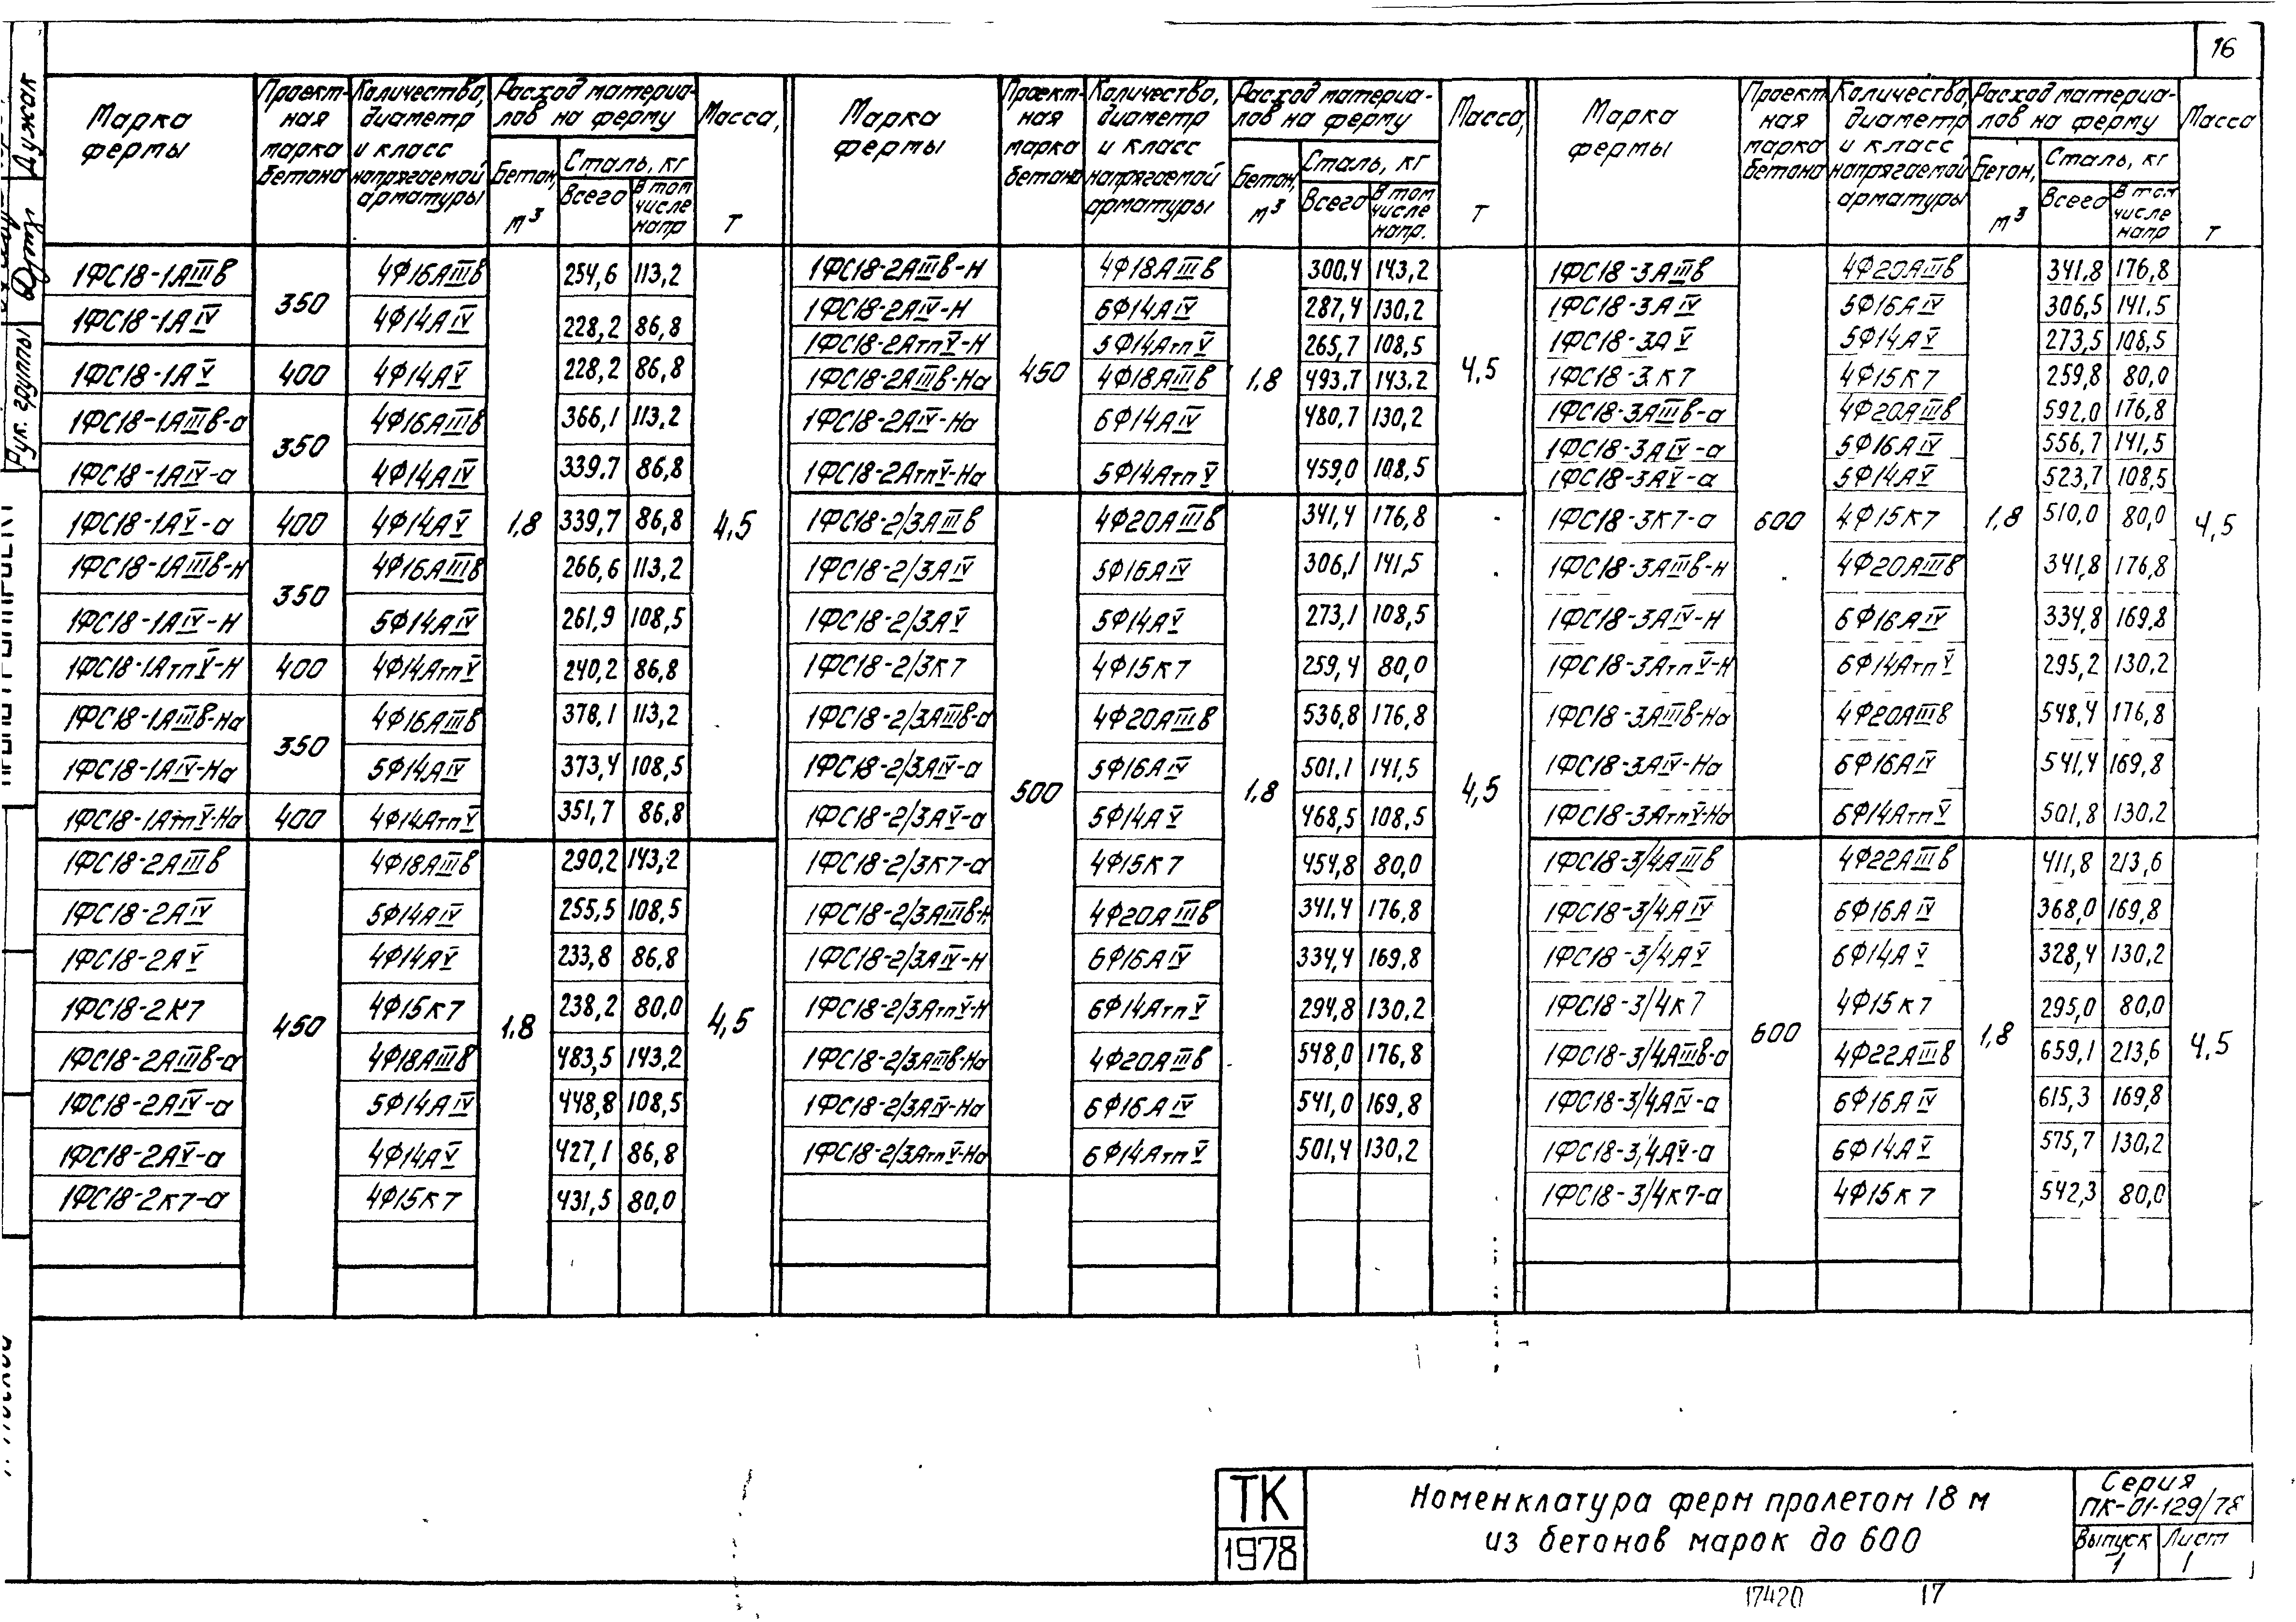 16
Марка фермы | Проектная марка бетона | Количество, диаметр и класс напрягаемой арматуры | Расход материалов на ферму | Бетон, м³ | Сталь, кг | Всего | В том числе напр | Масса, т
1ФС18-1АIIIв | 350 | 4Ф16АIIIв | 1,8 | 254,6 | 113,2 | 4,5
1ФС18-1АIV | 4Ф14АIV | 228,2 | 86,8
1ФС18-1АV | 400 | 4Ф14АV | 228,2 | 86,8
1ФС18-1АIIIв-а | 350 | 4Ф16АIIIв | 366,1 | 113,2
1ФС18-1АIV-а | 4Ф14АIV | 339,7 | 86,8
1ФС18-1АV-а | 400 | 4Ф14АV | 339,7 | 86,8
1ФС18-1АIIIв-Н | 350 | 4Ф16АIIIв | 266,6 | 113,2
1ФС18-1АIV-Н | 5Ф14АIV | 261,9 | 108,5
1ФС18-1АтпV-Н | 400 | 4Ф14АтпV | 240,2 | 86,8
1ФС18-1АIIIв-На | 350 | 4Ф16АIIIв | 378,1 | 113,2
1ФС18-1АIV-На | 5Ф14АIV | 373,4 | 108,5
1ФС18-1АтпV-На | 400 | 4Ф14АтпV | 351,7 | 86,8
1ФС18-2АIIIв | 450 | 4Ф18АIIIв | 1,8 | 290,2 | 143,2 | 4,5
1ФС18-2АIV | 5Ф14АIV | 255,5 | 108,5
1ФС18-2АV | 4Ф14АV | 233,8 | 86,8
1ФС18-2К7 | 4Ф15К7 | 238,2 | 80,0
1ФС18-2АIIIв-а | 4Ф18АIIIв | 483,5 | 143,2
1ФС18-2АIV-а | 5Ф14АIV | 448,8 | 108,5
1ФС18-2АV-а | 4Ф14АV | 427,1 | 86,8
1ФС18-2К7-а | 4Ф15К7 | 431,5 | 80,0
Марка фермы | Проектная марка бетона | Количество, диаметр и класс напрягаемой арматуры | Расход материалов на ферму | Бетон, м³ | Сталь, кг | Всего | В том числе напр. | Масса, т
1ФС18-2АIIIв-Н | 450 | 4Ф18АIIIв | 1,8 | 300,4 | 143,2 | 4,5
1ФС18-2АIV-Н | 6Ф14АIV | 287,4 | 130,2
1ФС18-2АтпV-Н | 5Ф14АтпV | 265,7 | 108,5
1ФС18-2АIIIв-На | 4Ф18АIIIв | 493,7 | 143,2
1ФС18-2АIV-На | 6Ф14АIV | 480,7 | 130,2
1ФС18-2АтпV-На | 5Ф14АтпV | 459,0 | 108,5
1ФС18-2/3АIIIв | 500 | 4Ф20АIIIв | 1,8 | 341,4 | 176,8 | 4,5
1ФС18-2/3АIV | 5Ф16АIV | 306,1 | 141,5
1ФС18-2/3АV | 5Ф14АV | 273,1 | 108,5
1ФС18-2/3К7 | 4Ф15К7 | 259,4 | 80,0
1ФС18-2/3АIIIв-а | 4Ф20АIIIв | 536,8 | 176,8
1ФС18-2/3АIV-а | 5Ф16АIV | 501,1 | 141,5
1ФС18-2/3АV-а | 5Ф14АV | 468,5 | 108,5
1ФС18-2/3К7-а | 4Ф15К7 | 454,8 | 80,0
1ФС18-2/3АIIIв-Н | 4Ф20АIIIв | 341,4 | 176,8
1ФС18-2/3АIV-Н | 6Ф16АIV | 334,4 | 169,8
1ФС18-2/3АтпV-Н | 6Ф14АтпV | 294,8 | 130,2
1ФС18-2/3АIIIв-На | 4Ф20АIIIв | 548,0 | 176,8
1ФС18-2/3АIV-На | 6Ф16АIV | 541,0 | 169,8
1ФС18-2/3АтпV-На | 6Ф14АтпV | 501,4 | 130,2
Марка фермы | Проектная марка бетона | Количество, диаметр и класс напрягаемой арматуры | Расход материалов на ферму | Бетон, м³ | Сталь, кг | Всего | В том числе напр | Масса т
1ФС18-3АIIIв | 600 | 4Ф20АIIIв | 1,8 | 341,8 | 176,8 | 4,5
1ФС18-3АIV | 5Ф16АIV | 306,5 | 141,5
1ФС18-3АV | 5Ф14АV | 273,5 | 108,5
1ФС18-3К7 | 4Ф15К7 | 259,8 | 80,0
1ФС18-3АIIIв-а | 4Ф20АIIIв | 592,0 | 176,8
1ФС18-3АIV-а | 5Ф16АIV | 556,7 | 141,5
1ФС18-3АV-а | 5Ф14АV | 523,7 | 108,5
1ФС18-3К7-а | 4Ф15К7 | 510,0 | 80,0
1ФС18-3АIIIв-Н | 4Ф20АIIIв | 341,8 | 176,8
1ФС18-3АIV-Н | 6Ф16АIV | 334,8 | 169,8
1ФС18-3АтпV-Н | 6Ф14АтпV | 295,2 | 130,2
1ФС18-3АIIIв-На | 4Ф20АIIIв | 548,4 | 176,8
1ФС18-3АIV-На | 6Ф16АIV | 541,4 | 169,8
1ФС18-3АтпV-На | 6Ф14АтпV | 501,8 | 130,2
1ФС18-3/4АIIIв | 600 | 4Ф22АIIIв | 1,8 | 411,8 | 213,6 | 4,5
1ФС18-3/4АIV | 6Ф16АIV | 368,0 | 169,8
1ФС18-3/4АV | 6Ф14АV | 328,4 | 130,2
1ФС18-3/4К7 | 4Ф15К7 | 295,0 | 80,0
1ФС18-3/4АIIIв-а | 4Ф22АIIIв | 659,1 | 213,6
1ФС18-3/4АIV-а | 6Ф16АIV | 615,3 | 169,8
1ФС18-3/4АV-а | 6Ф14АV | 575,7 | 130,2
1ФС18-3/4К7-а | 4Ф15К7 | 542,3 | 80,0
Рук. группы
Дужак
ТК
1978
Номенклатура ферм пролетом 18 м
из бетонов марок до 600
Серия
ПК-01-129/78
Выпуск 1
Лист 1
17420 17